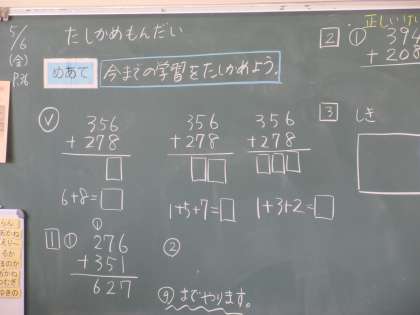 5/6
(金)
P.36
たしかめもんだい
めあて 今までの学習をたしかめよう。
✓
356
+278
□
6+8=□
356
+278
□□
1+5+7=□
356
+278
□□□
1+3+2=□
1 ①
1
276
+351
627
②
⑨までやります。
正しい
2 ①
394
+208
3
しき